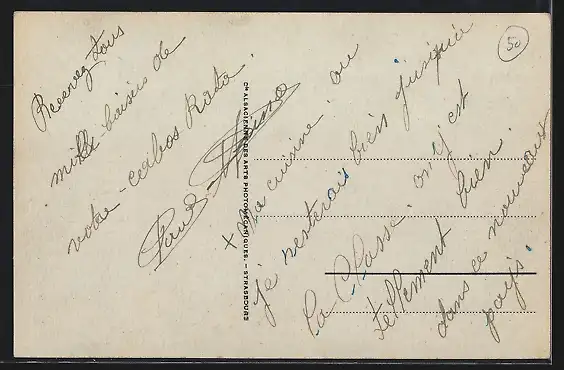 Recevez tous
mille baisers de
votre
Paul
50
Cie ALSACIENNE DES ARTS PHOTOMÉCANIQUES. — STRASBOURG
+ Ma cuisine. ou
je resterais bien jusqu'à
la Classe. on y est
tellement bien.
dans ce nouveau
pays.